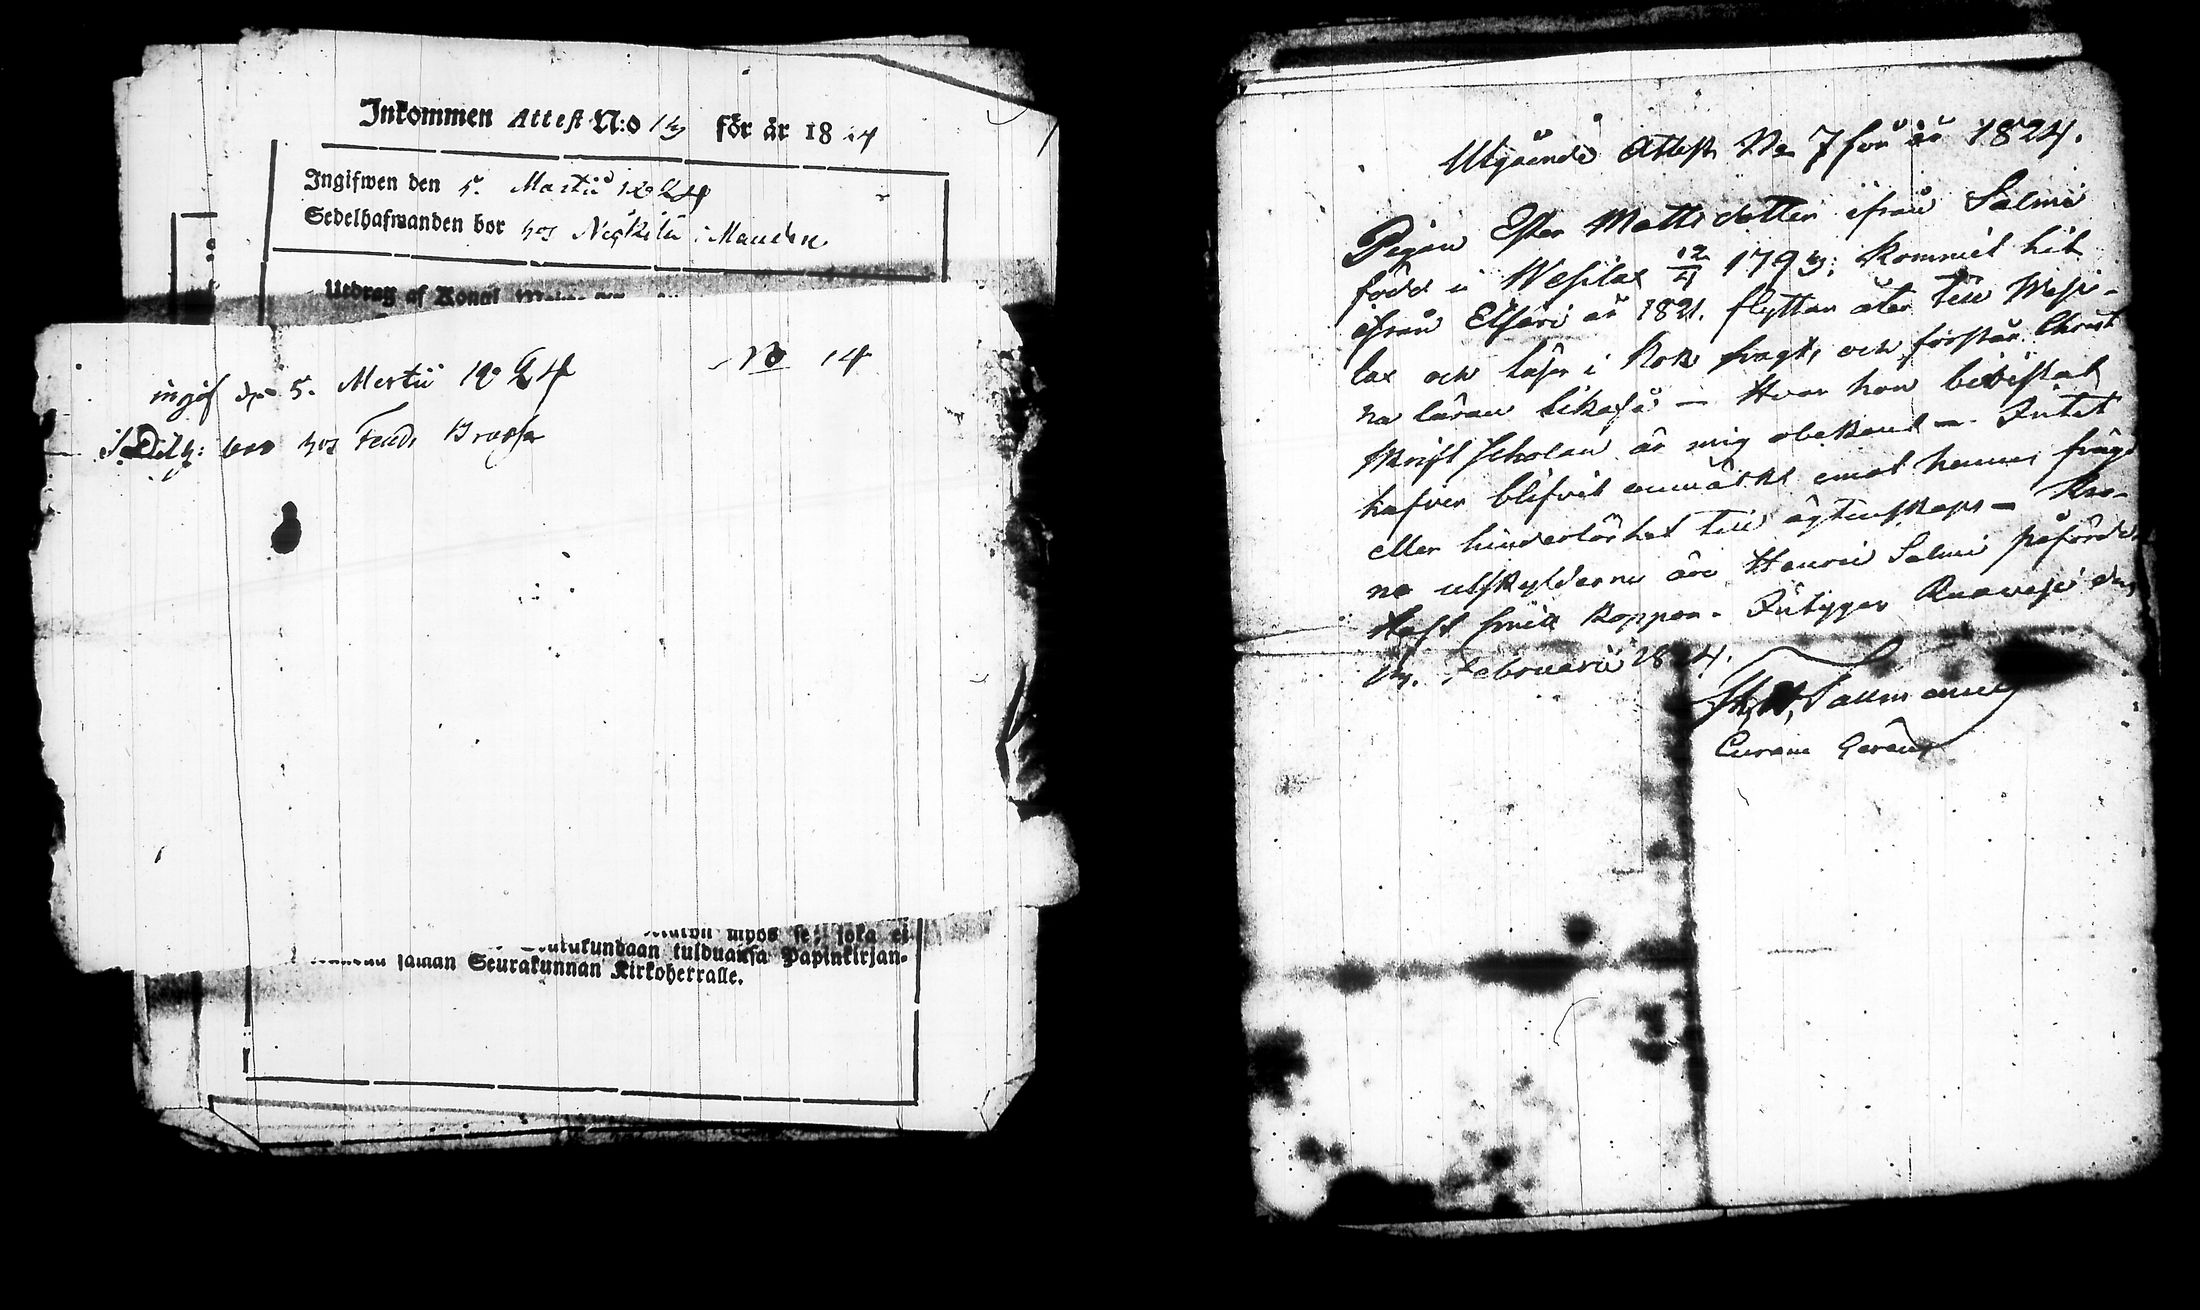 Inkommen Attest N:o 13 för år 1824
Ingifwen den 5. Martii 1824
Sedelhafwanden bor hos i
Utdrag af Kongl
ingif. d. 5. Martii 1824 No 14
bor hos
myös se, joka ei
tulduansa Papinkirjan-
saman Seurakunnan Kirkoherralle.
Utgående Attest No 7 för år 1824.
Pigan Ester Matts dotter ifrån Salmi
född i Wesilax 12/4 1793; kommit hit
ifrån Etseri år 1821. flyttar åter till Wesi-
lax och läser i Bok svagt, och förstår Christ
na läran likaså — Hvar hon bevistat
skrift scholan är mig obekant — Intet
hafver blifvit anmärkt emot hennes frägd
eller hinderlöshet till ägtenskaps — Kro-
no utskylderne äro Henric Salmi påförde
Haft små koppor. Intygar Ruovesi den
Februarii 1824.
Tallmann
Curam Gerens